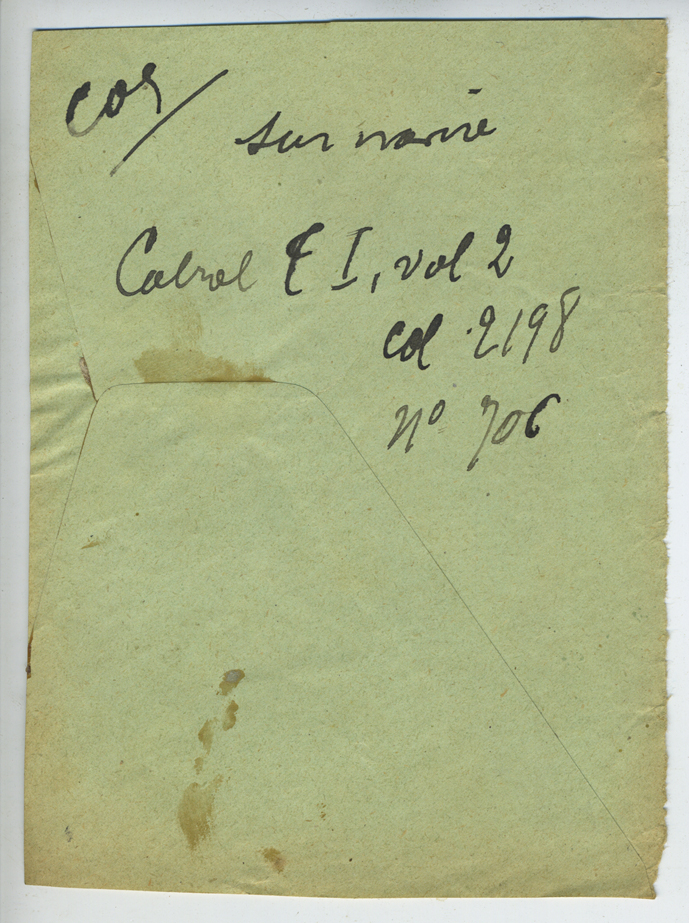 cor/
sur navire
Cabrol T I, vol 2
col 2198
nº 706